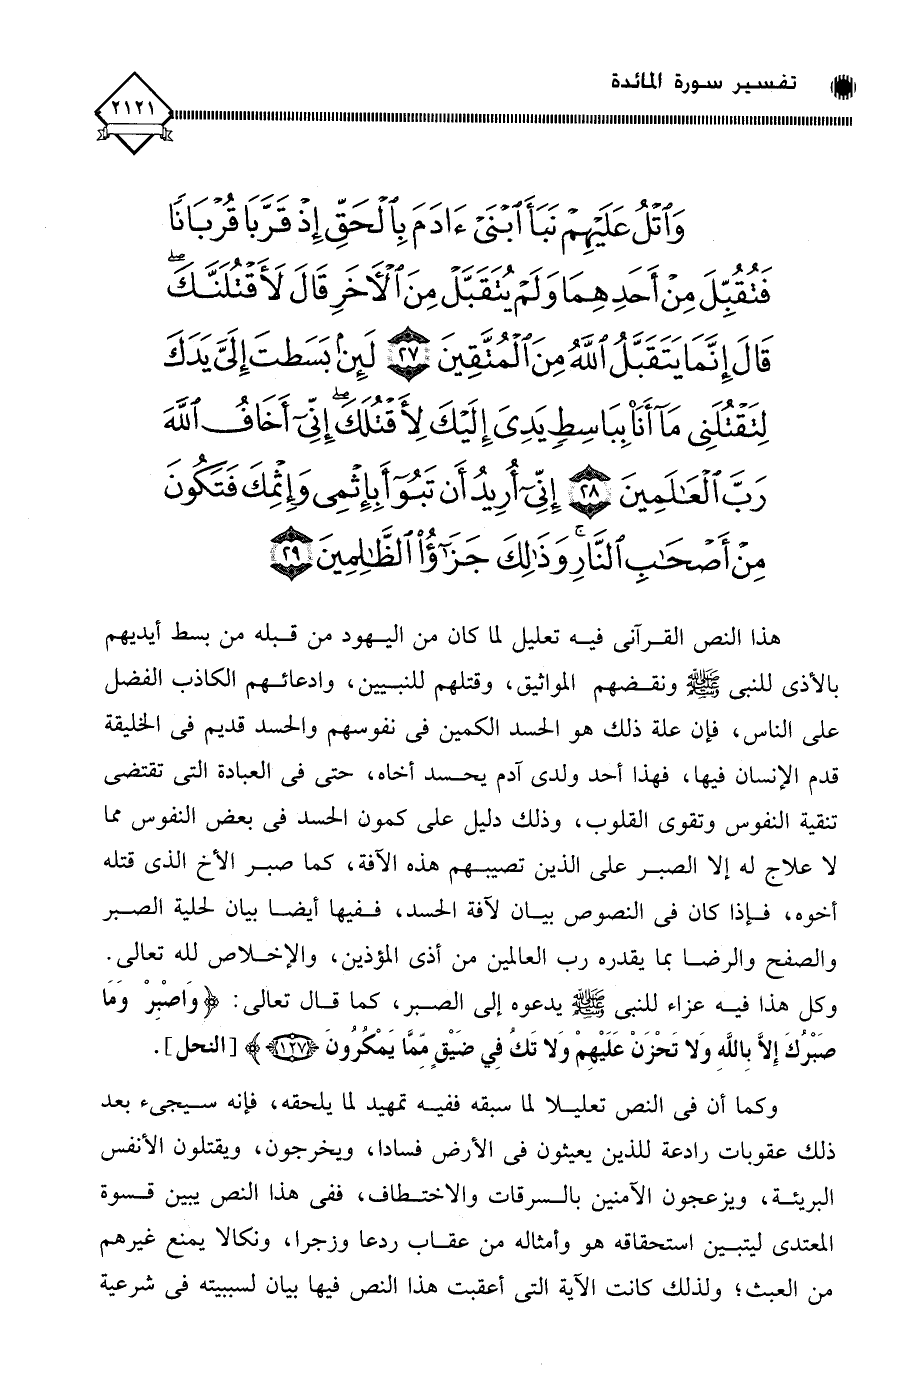 تفسير سورة المائدة
٢١٢١
وَٱتْلُ عَلَيْهِمْ نَبَأَ ٱبْنَىْ ءَادَمَ بِٱلْحَقِّ إِذْ قَرَّبَا قُرْبَانًا
فَتُقُبِّلَ مِنْ أَحَدِهِمَا وَلَمْ يُتَقَبَّلْ مِنَ ٱلْأَخَرِ قَالَ لَأَقْتُلَنَّكَ ۖ
قَالَ إِنَّمَا يَتَقَبَّلُ ٱللَّهُ مِنَ ٱلْمُتَّقِينَ ﴿٢٧﴾ لَئِنۢ بَسَطتَ إِلَىَّ يَدَكَ
لِتَقْتُلَنِى مَآ أَنَا۠ بِبَاسِطٍ يَدِىَ إِلَيْكَ لِأَقْتُلَكَ ۖ إِنِّىٓ أَخَافُ ٱللَّهَ
رَبَّ ٱلْعَـٰلَمِينَ ﴿٢٨﴾ إِنِّىٓ أُرِيدُ أَن تَبُوٓأَ بِإِثْمِى وَإِثْمِكَ فَتَكُونَ
مِنْ أَصْحَـٰبِ ٱلنَّارِ ۚ وَذَٰلِكَ جَزَٰٓؤُا۟ ٱلظَّـٰلِمِينَ ﴿٢٩﴾
هذا النص القرآنى فيه تعليل لما كان من اليهود من قبله من بسط أيديهم
بالأذى للنبى ﷺ ونقضهم المواثيق، وقتلهم للنبيين، وادعائهم الكاذب الفضل
على الناس، فإن علة ذلك هو الحسد الكمين فى نفوسهم والحسد قديم فى الخليقة
قدم الإنسان فيها، فهذا أحد ولدى آدم يحسد أخاه، حتى فى العبادة التى تقتضى
تنقية النفوس وتقوى القلوب، وذلك دليل على كمون الحسد فى بعض النفوس مما
لا علاج له إلا الصبر على الذين تصيبهم هذه الآفة، كما صبر الأخ الذى قتله
أخوه، فإذا كان فى النصوص بيان لآفة الحسد، ففيها أيضا بيان لحلية الصبر
والصفح والرضا بما يقدره رب العالمين من أذى المؤذين، والإخلاص لله تعالى.
وكل هذا فيه عزاء للنبى ﷺ يدعوه إلى الصبر، كما قال تعالى: ﴿وَاصْبِرْ وَمَا
صَبْرُكَ إِلاَّ بِاللَّهِ وَلا تَحْزَنْ عَلَيْهِمْ وَلا تَكُ فِي ضَيْقٍ مِّمَّا يَمْكُرُونَ ﴿١٢٧﴾﴾ [النحل].
وكما أن فى النص تعليلا لما سبقه ففيه تمهيد لما يلحقه، فإنه سيجىء بعد
ذلك عقوبات رادعة للذين يعيثون فى الأرض فسادا، ويخرجون، ويقتلون الأنفس
البريئة، ويزعجون الآمنين بالسرقات والاختطاف، ففى هذا النص يبين قسوة
المعتدى ليتبين استحقاقه هو وأمثاله من عقاب ردعا وزجرا، ونكالا يمنع غيرهم
من العبث؛ ولذلك كانت الآية التى أعقبت هذا النص فيها بيان لسببيته فى شرعية